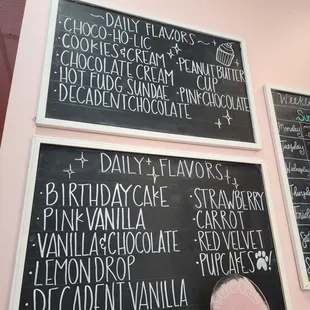 DAILY FLAVORS
CHOCO-HO-LIC
COOKIES & CREAM
CHOCOLATE CREAM
HOT FUDG SUNDAE
DECADENT CHOCOLATE
PEANUT BUTTER
CUP
PINK CHOCOLATE
DAILY FLAVORS
BIRTHDAY CAKE
PINK VANILLA
VANILLA & CHOCOLATE
LEMON DROP
DECADENT VANILLA
STRAWBERRY
CARROT
RED VELVET
PUPCAKES!
Monday